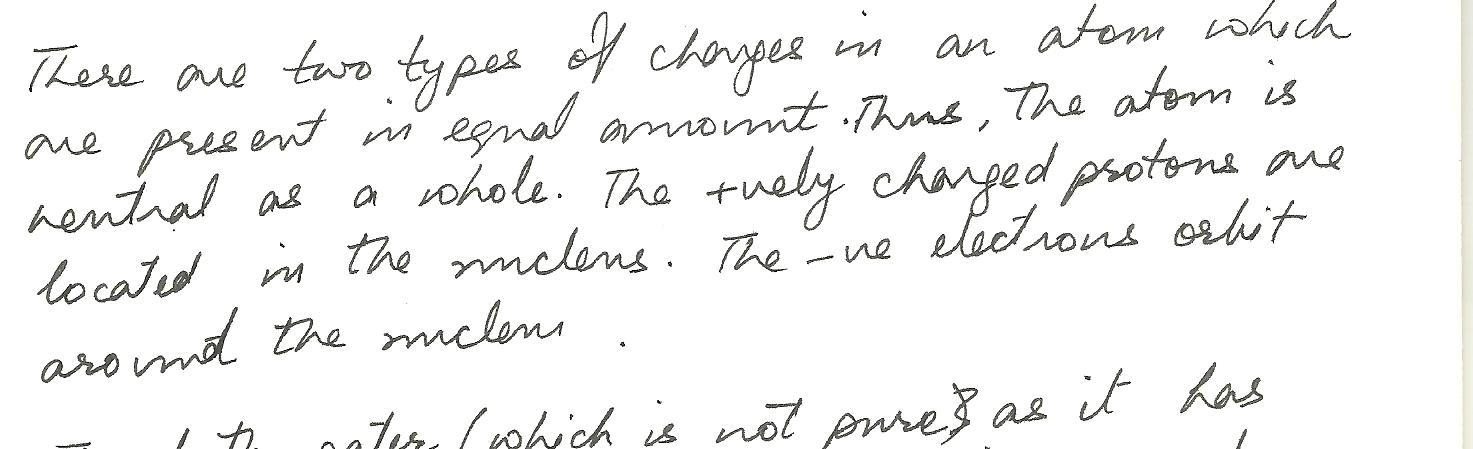 There are two types of charges in an atom which
are present in equal amount. Thus, The atom is
neutral as a whole. The +vely charged protons are
located in the nucleus. The -ve electrons orbit
around the nucleus.
(which is not pure) as it has